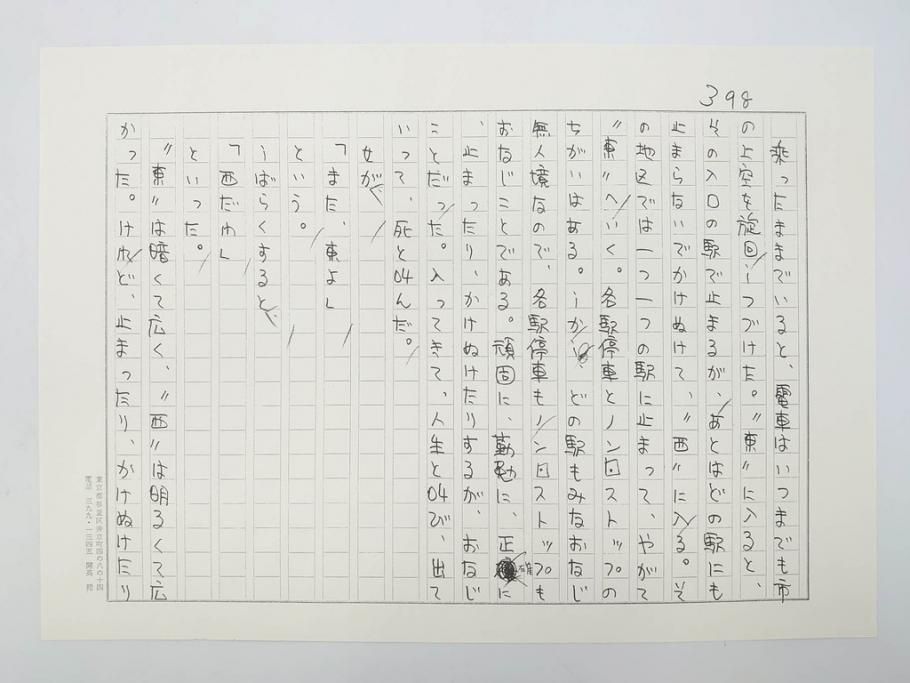 398
乗ったままでいると、電車はいつまでも市
の上空を旋回しつづけた。〃東〃に入ると、
その入口の駅で止まるが、あとはどの駅にも
止まらないでかけぬけて、〃西〃に入る。そ
の地区では一つ一つの駅に止まって、やがて
〃東〃へいく。各駅停車とノン・ストップの
ちがいはある。しかし、どの駅もみなおなじ
無人境なので、各駅停車もノン・ストップも
おなじことである。頑固に、勤勉に、正確に
、止まったり、かけぬけたりするが、おなじ
ことだった。入ってきて、人生とよび、出て
いって、死とよんだ。
女が、
「また、東よ」
という。
しばらくすると、
「西だわ」
といった。
〃東〃は暗くて広く、〃西〃は明るくて広
かった。けれど、止まったり、かけぬけたり
東京都杉並区井草町四の八の十四
電話 三九九・一三四五 開高 健